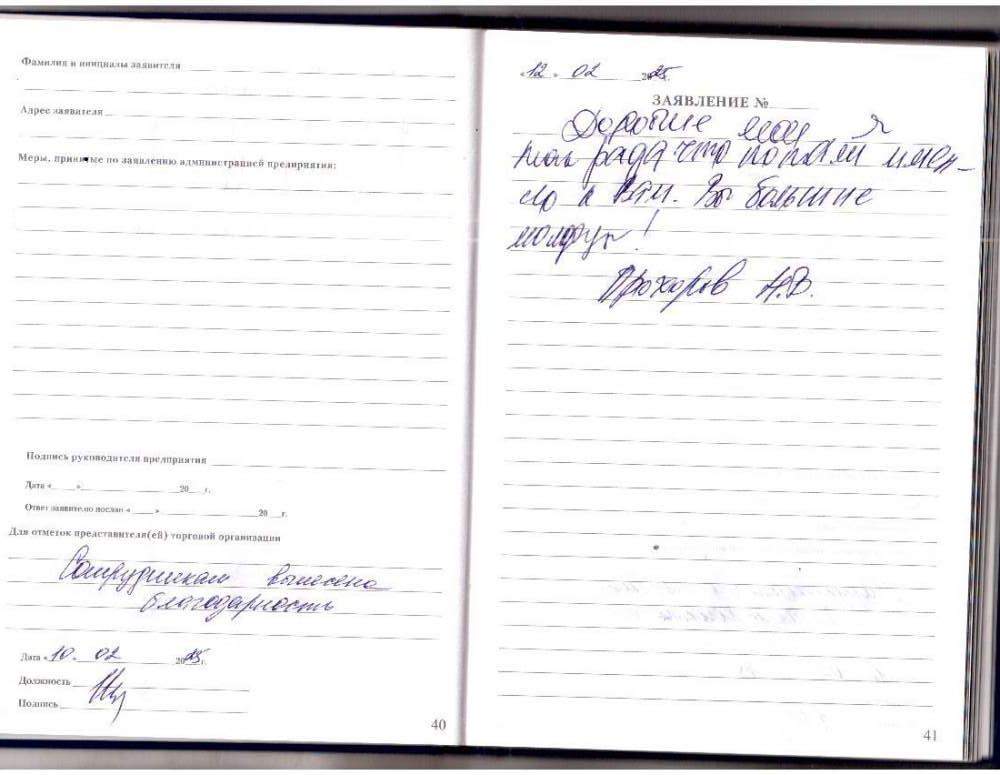 Фамилия и инициалы заявителя
Адрес заявителя
Меры, принятые по заявлению администрацией предприятия:
Подпись руководителя предприятия
Дата « » 20 г.
Ответ заявителю послан « » 20 г.
Для отметок представителя(ей) торговой организации
Сотрудникам вынесена
благодарность
Дата «10. 02 2025 г.
Должность
Подпись
40
«12» 02 2025
ЗАЯВЛЕНИЕ №
Дорогие мои я
рада что попали имен-
но к Вам. Вы большие
молодцы!
Прохоров А.В.
41